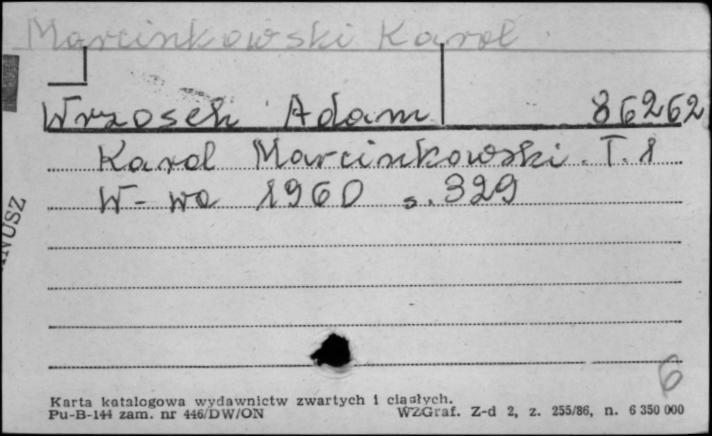 Marcinkowski Karol
Wrzosek Adam 86262
Karol Marcinkowski. T. 1
W-wa 1960 s. 329
NUSZ
6
Karta katalogowa wydawnictw zwartych i ciągłych.
Pu-B-144 zam. nr 446/DW/ON WZGraf. Z-d 2, z. 255/86, n. 6 350 000